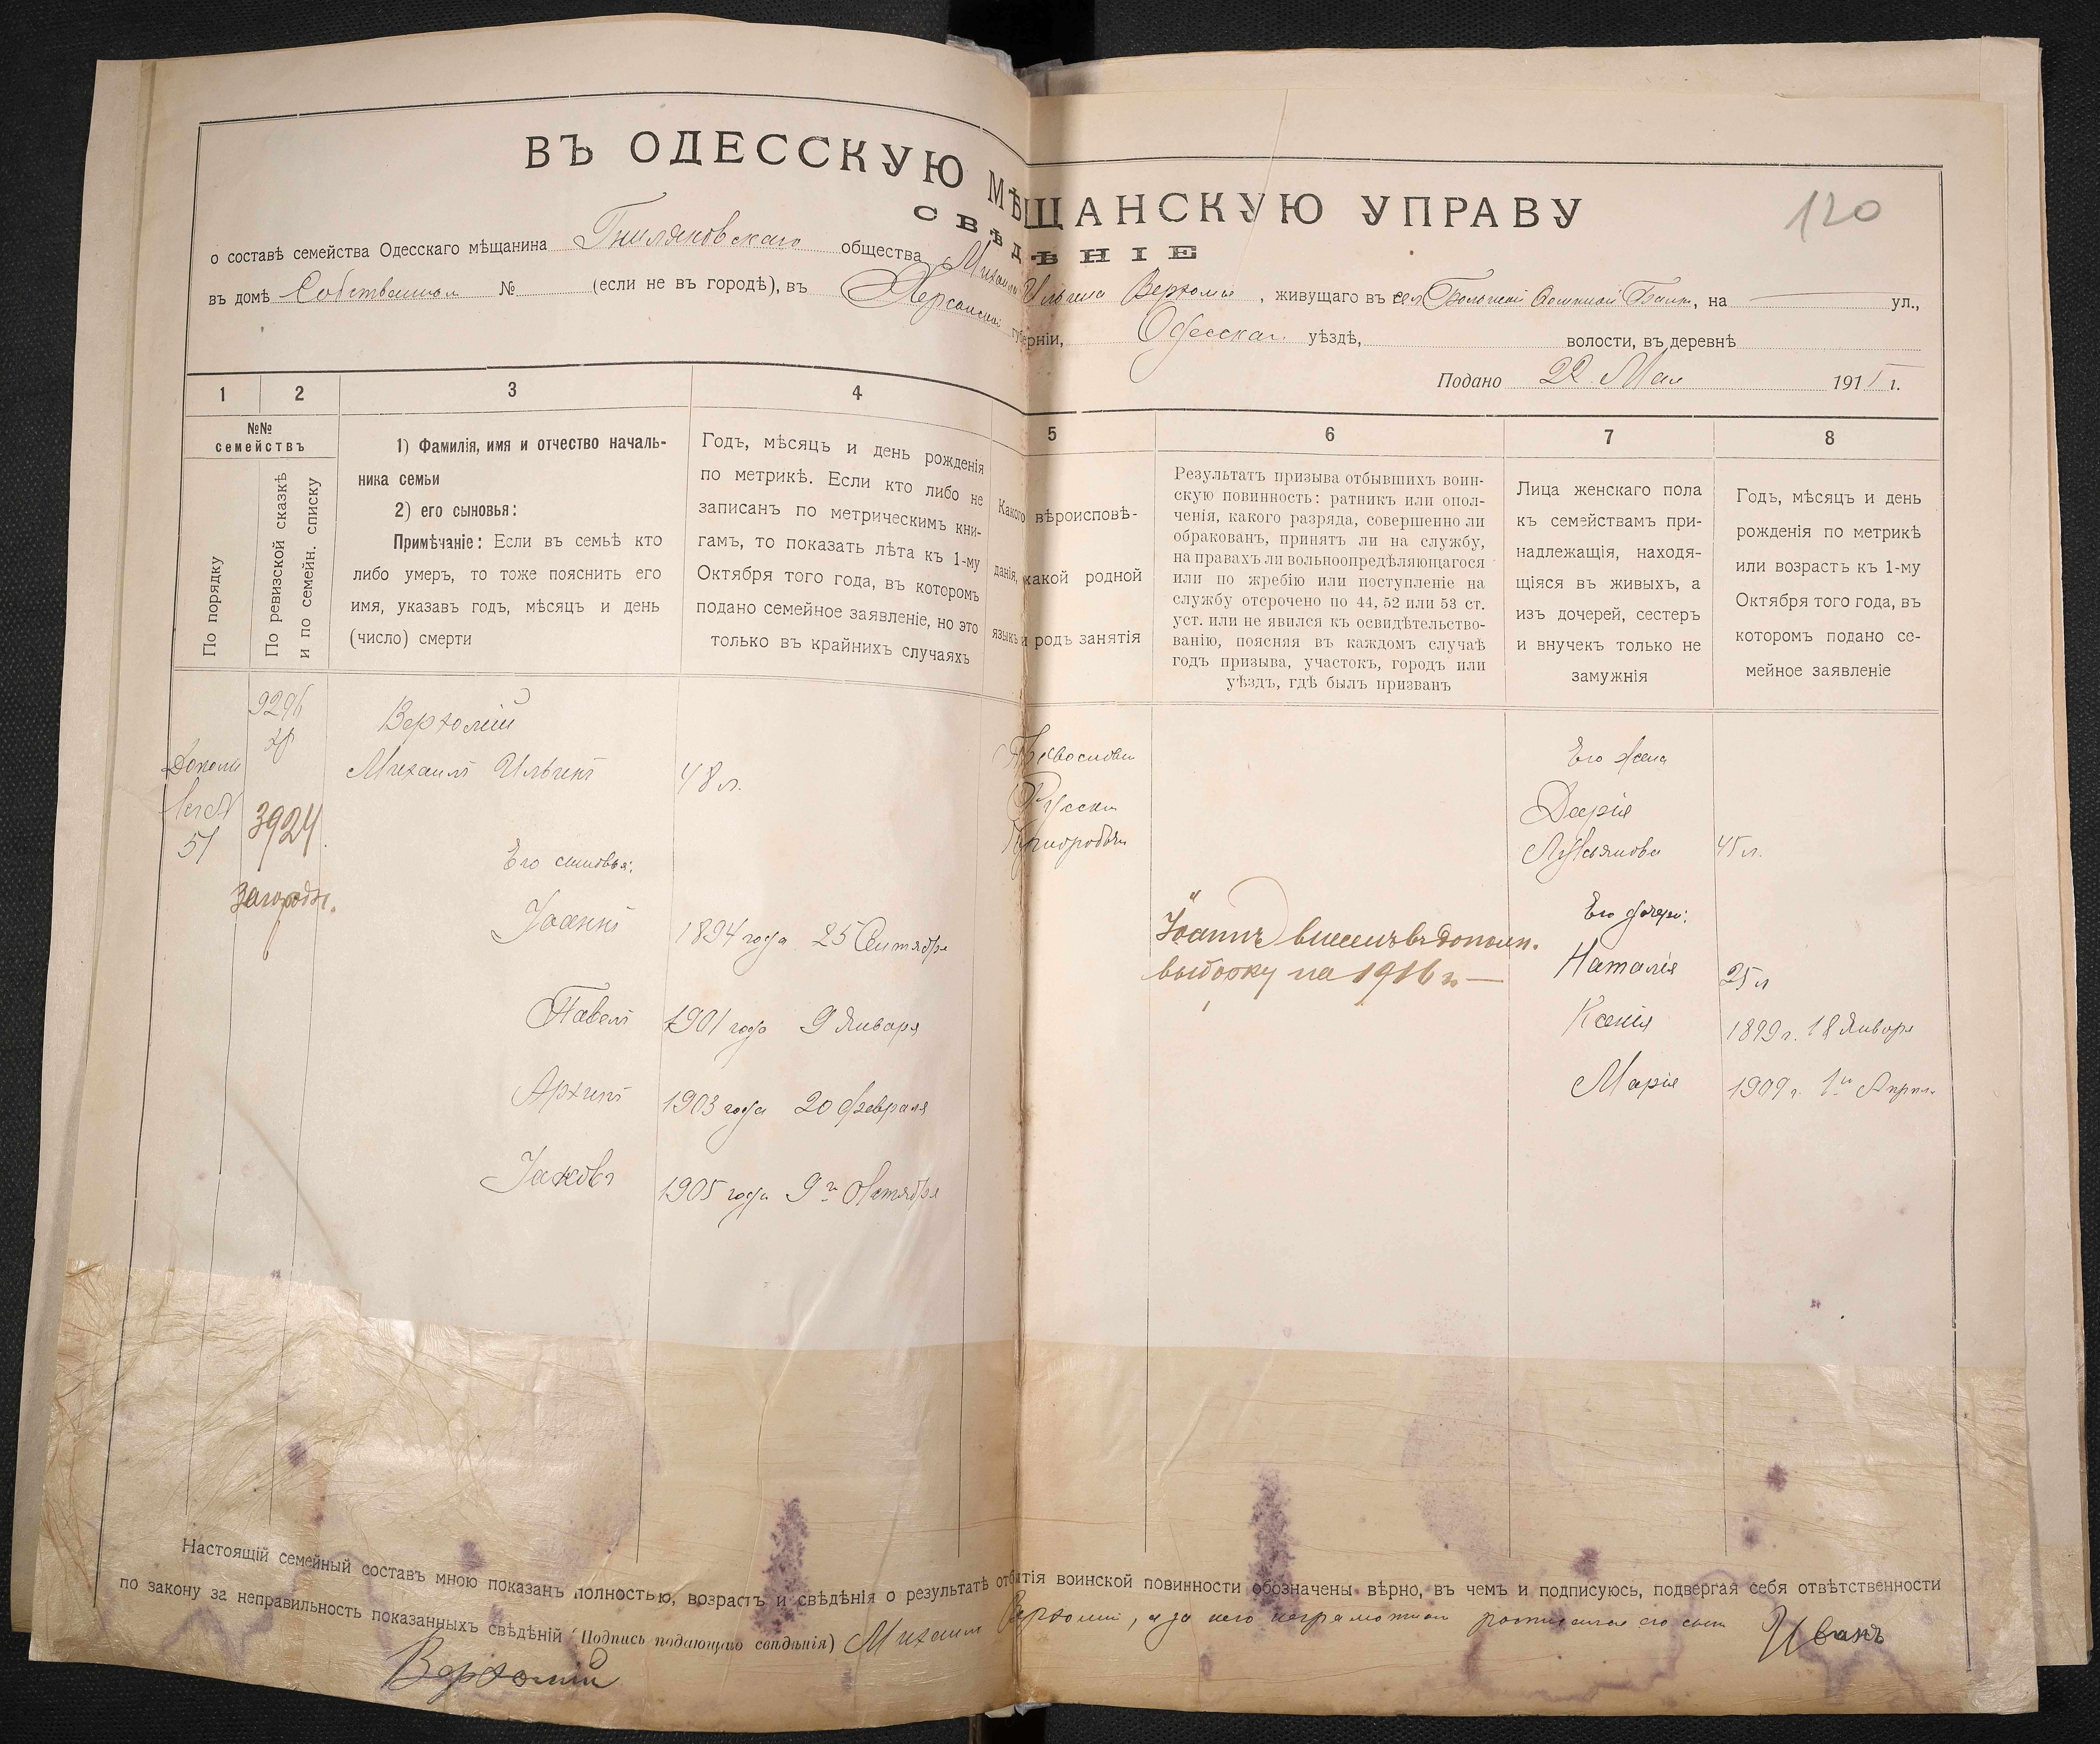 ВЪ ОДЕССКУЮ МѢЩАНСКУЮ УПРАВУ
120
СВѢДѢНІЕ
о составѣ семейства Одесскаго мѣщанина Гниляковскаго общества Михаила Ильина Верхолій, живущаго въ сел. Банк, на ул.,
въ домѣ Собственном № (если не въ городѣ), въ Херсонской губерніи, Одесскаго уѣздѣ, волости, въ деревнѣ
Подано 22 Мая 191 г.
1 2 3 4 5 6 7 8
№№
семействъ
По порядку
По ревизской сказкѣ
и по семейн. списку
1) Фамилія, имя и отчество началь-
ника семьи
2) его сыновья:
Примѣчаніе: Если въ семьѣ кто
либо умеръ, то тоже пояснить его
имя, указавъ годъ, мѣсяцъ и день
(число) смерти
Годъ, мѣсяцъ и день рожденія
по метрикѣ. Если кто либо не
записанъ по метрическимъ кни-
гамъ, то показать лѣта къ 1-му
Октября того года, въ которомъ
подано семейное заявленіе, но это
только въ крайнихъ случаяхъ
Какого вѣроисповѣ-
данія, какой родной
языкъ и родъ занятія
Результатъ призыва отбывшихъ воин-
скую повинность: ратникъ или опол-
ченія, какого разряда, совершенно ли
обракованъ, принятъ ли на службу,
на правахъ ли вольноопредѣляющагося
или по жребію или поступленіе на
службу отсрочено по 44, 52 или 53 ст.
уст. или не явился къ освидѣтельство-
ванію, поясняя въ каждомъ случаѣ
годъ призыва, участокъ, городъ или
уѣздъ, гдѣ былъ призванъ
Лица женскаго пола
къ семействамъ при-
надлежащія, находя-
щіяся въ живыхъ, а
изъ дочерей, сестеръ
и внучекъ только не
замужнія
Годъ, мѣсяцъ и день
рожденія по метрикѣ
или возрастъ къ 1-му
Октября того года, въ
которомъ подано се-
мейное заявленіе
9296
Верхолій
Михаилъ Ильинъ 48 л.
51
3924
Загородн.
Православн
Русски
Его жена
Дарія
Лукьянова 45 л.
Его сыновья:
Іоаннъ 1894 года 25 Сентября
Павелъ 1901 года 9 Января
Архипъ 1903 года 20 февраля
Іаковъ 1905 года 9го Октября
Іоаннъ внесенъ въ дополн.
выборку на 1916 г. —
Его дочери:
Наталія 25 л
Ксенія 1899 г. 18 Января
Марія 1909 г. 1го Апрѣл.
Настоящій семейный составъ мною показанъ полностью, возрастъ и свѣдѣнія о результатѣ отбытія воинской повинности обозначены вѣрно, въ чемъ и подписуюсь, подвергая себя отвѣтственности
по закону за неправильность показанныхъ свѣдѣній (Подпись подающаго свѣдѣнія) Михаилъ Верхолій, а за него неграмотнаго росписался его сынъ Иванъ
Верхолій